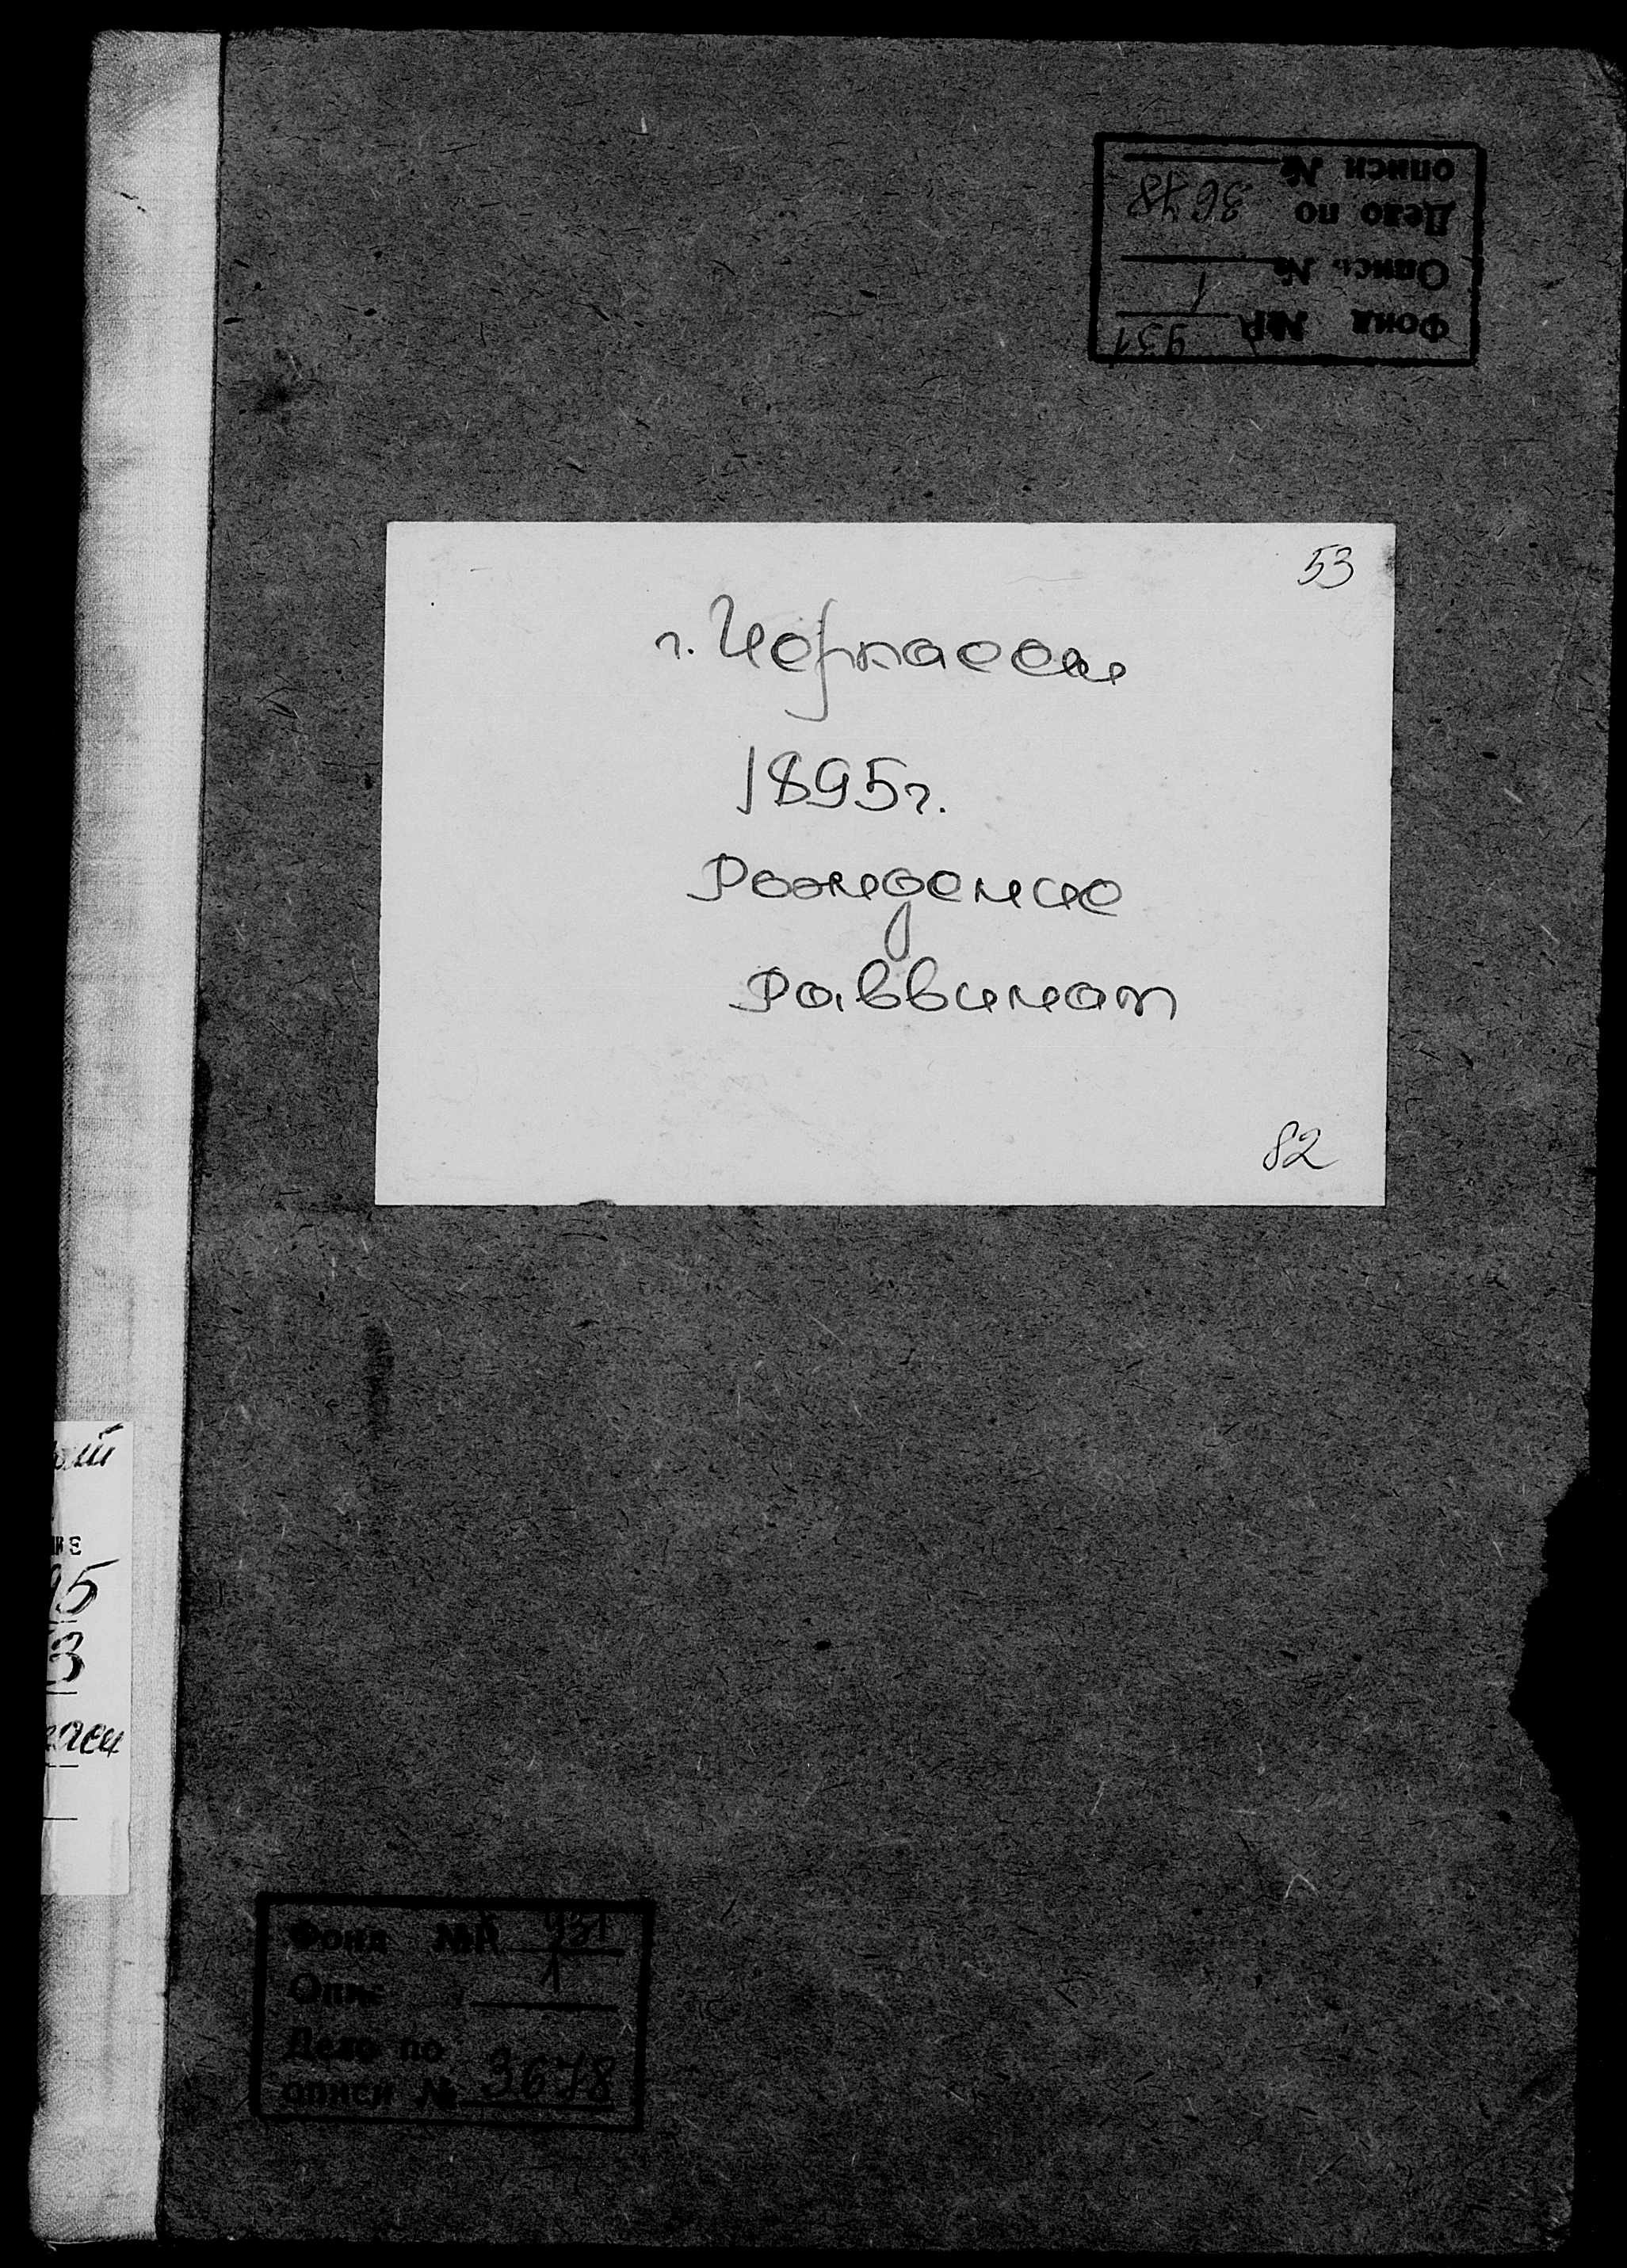 описи №
Дело по 3678
Опись №
1
Фонд №Р 931
53
г. Черкассы
1895г.
Рождение
Раввинат
82
95
3
Фонд №Р 931
Опись 1
Дело по
описи № 3678